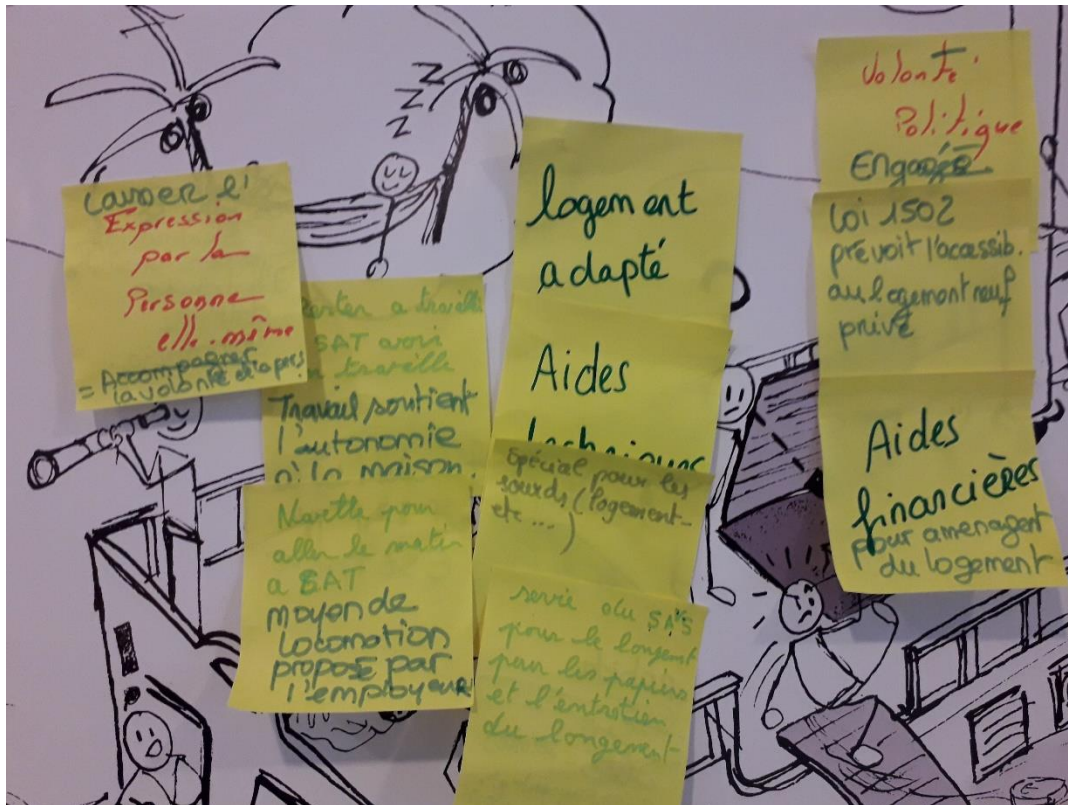 Laisser l'
Expression
par la
Personne
elle-même
= Accompagner
la volonté de la pers
Z
Z
Z
Z
rester a travill
SAT avoir
travaille
Travail soutient
l'autonomie
à la maison.
Navette pour
aller le matin
a SAT
moyen de
locomotion
proposé par
l'employeur
logement
adapté
Aides
techniques
Spécial pour les
sourds (logement
etc ...)
servie du SAVS
pour le longement
pour les papiers
et l'entretien
du longement
Volonté
Politique
Engagée
Loi 1502
prévoit l'accessib.
au logement neuf
privé
Aides
financières
pour amenagent
du logement